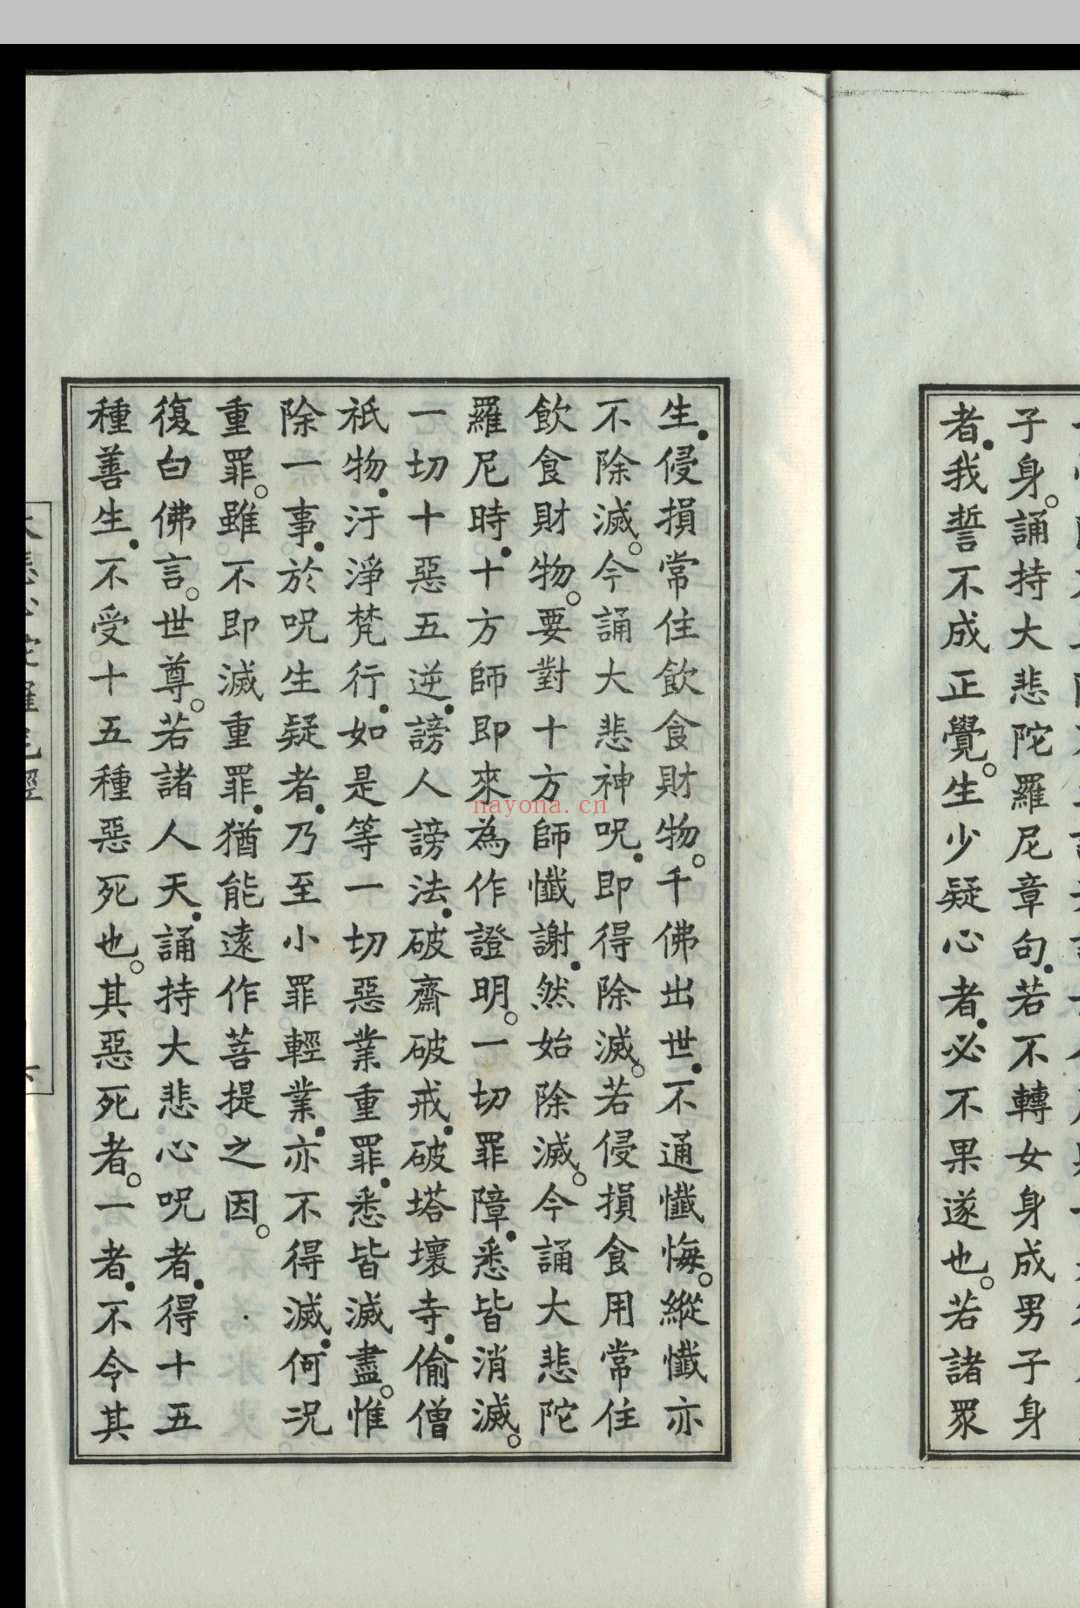 子身。誦持大悲陀羅尼章句.若不轉女身成男子身
者.我誓不成正覺。生少疑心者.必不果遂也。若諸眾
生.侵損常住飲食財物。千佛出世.不通懺悔。縱懺亦
不除滅。今誦大悲神呪.即得除滅。若侵損食用常住
飲食財物。要對十方師懺謝.然始除滅。今誦大悲陀
羅尼時.十方師即來為作證明。一切罪障.悉皆消滅。
一切十惡五逆.謗人謗法.破齋破戒.破塔壞寺.偷僧
祇物.汙淨梵行.如是等一切惡業重罪.悉皆滅盡。惟
除一事.於呪生疑者.乃至小罪輕業.亦不得滅.何況
重罪。雖不即滅重罪.猶能遠作菩提之因。
復白佛言。世尊。若諸人天.誦持大悲心呪者.得十五
種善生.不受十五種惡死也。其惡死者。一者.不令其
nayona.cn